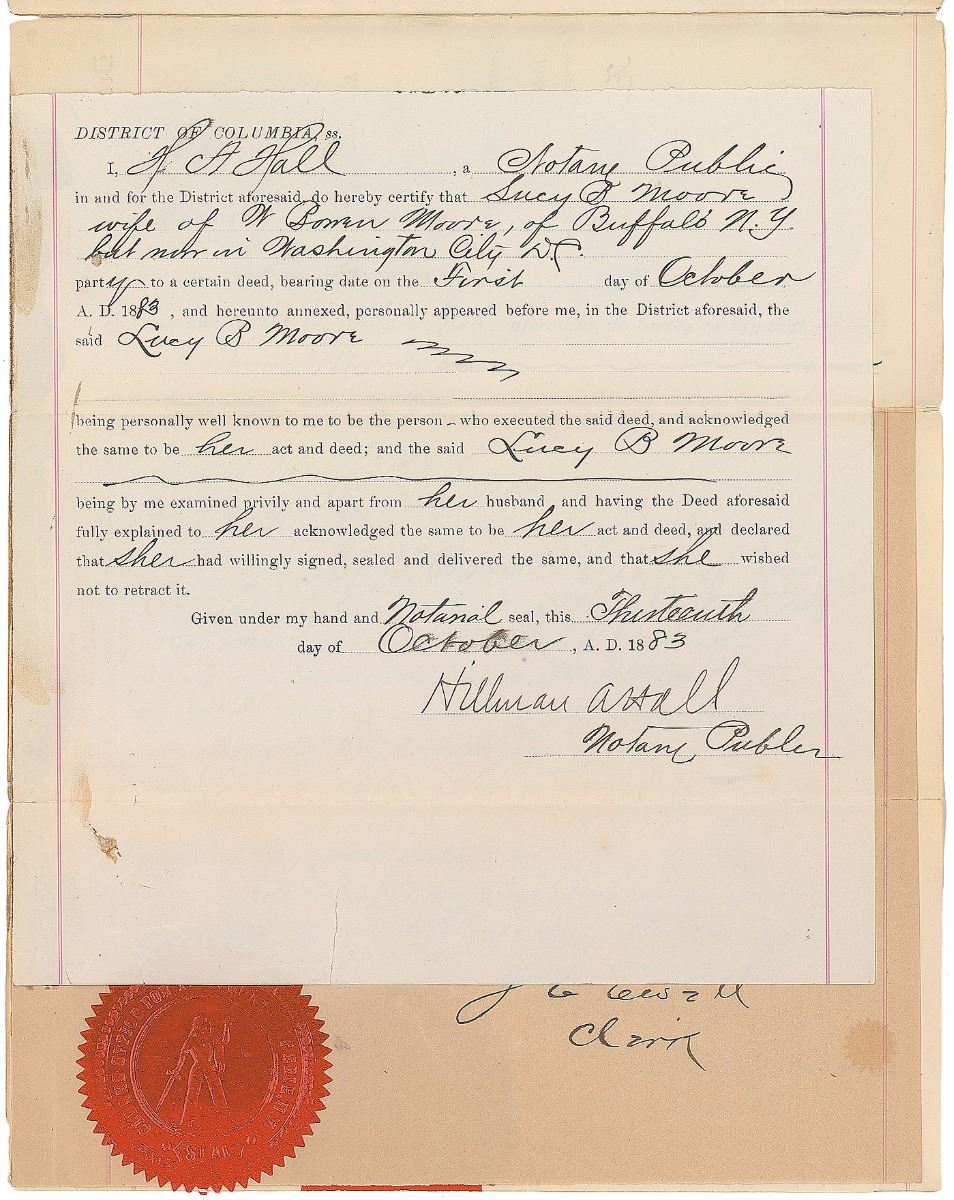 DISTRICT OF COLUMBIA, ss.
I, H A Hall , a Notary Public
in and for the District aforesaid, do hereby certify that Lucy B Moore
wife of W Bowen Moore, of Buffalo N.Y.
but now in Washington City D.C.
party to a certain deed, bearing date on the First day of October
A. D. 1883 , and hereunto annexed, personally appeared before me, in the District aforesaid, the
said Lucy B Moore
being personally well known to me to be the person who executed the said deed, and acknowledged
the same to be her act and deed; and the said Lucy B Moore
being by me examined privily and apart from her husband and having the Deed aforesaid
fully explained to her acknowledged the same to be her act and deed, and declared
that sher had willingly signed, sealed and delivered the same, and that she wished
not to retract it.
Given under my hand and Notarial seal, this Thirteenth
day of October , A. D. 1883
Hillman A Hall
Notary Public
Clerk
SEAL